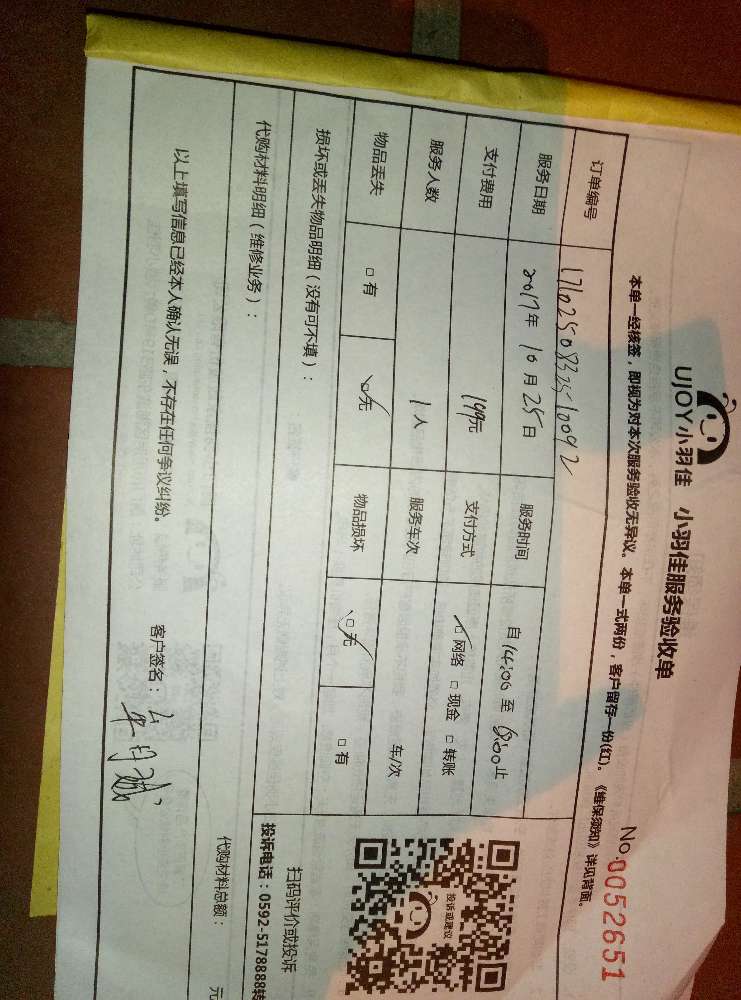 UJOY小羽佳 小羽佳服务验收单
No.0052651
本单一经核签，即视为对本次服务验收无异议。本单一式两份，客户留存一份(红)。《维保须知》详见背面。
订单编号 1710250832510092
服务日期 2017年 10月 25日 服务时间 自 14:00 至 18:00 止
支付费用 199元 支付方式 ☑网络 □现金 □转账
服务人数 1人 服务车次 车/次
物品丢失 □有 ☑无 物品损坏 ☑无 □有
损坏或丢失物品明细（没有可不填）：
代购材料明细（维修业务）：
投诉或建议
扫码评价或投诉
投诉电话：0592-5178888转
代购材料总额： 元
以上填写信息已经本人确认无误，不存在任何争议纠纷。
客户签名：